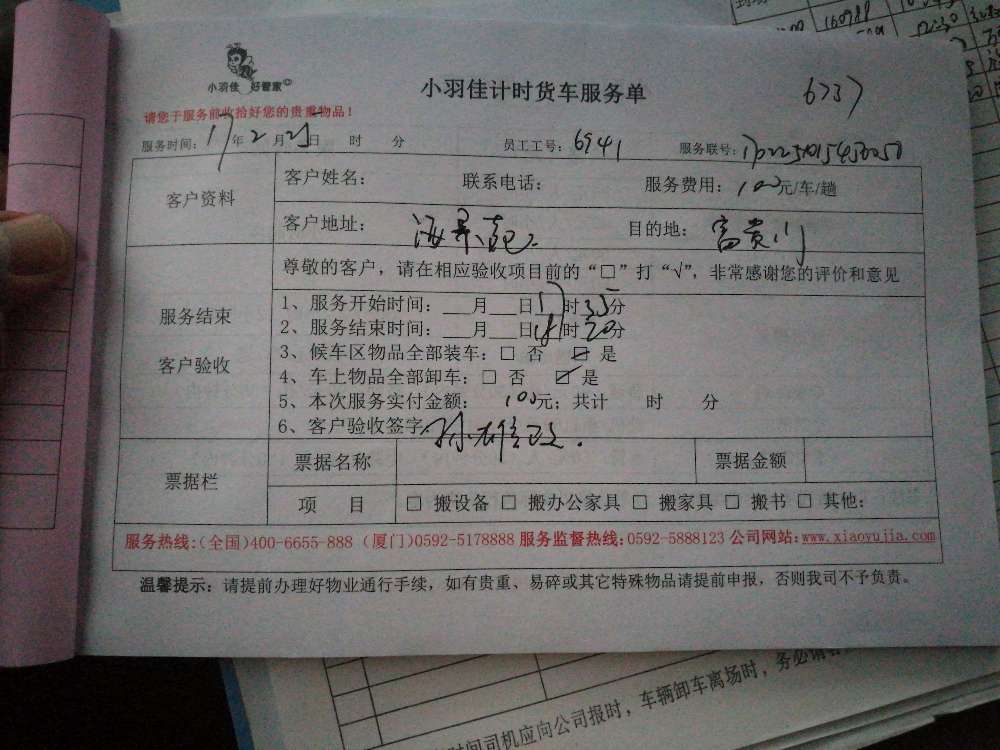 小羽佳 好管家
小羽佳计时货车服务单
6737
请您于服务前收拾好您的贵重物品!
服务时间: 17 年 2 月 25 日 时 分 员工工号: 6941 服务联号:
客户资料
客户姓名: 联系电话: 服务费用: 100 元/车/趟
客户地址: 海景苑. 目的地: 富贵门
尊敬的客户，请在相应验收项目前的“□”打“√”，非常感谢您的评价和意见
服务结束
客户验收
1、服务开始时间: ___月___日 17 时 35 分
2、服务结束时间: ___月___日 18 时 20 分
3、候车区物品全部装车: □ 否 ☑ 是
4、车上物品全部卸车: □ 否 ☑ 是
5、本次服务实付金额: 100 元; 共计 时 分
6、客户验收签字
票据栏
票据名称 票据金额
项 目 □ 搬设备 □ 搬办公家具 □ 搬家具 □ 搬书 □ 其他:
服务热线:(全国)400-6655-888 (厦门)0592-5178888 服务监督热线:0592-5888123 公司网站: www.xiaoyujia.com
温馨提示: 请提前办理好物业通行手续，如有贵重、易碎或其它特殊物品请提前申报，否则我司不予负责。
时间司机应向公司报时，车辆卸车离场时，务必请